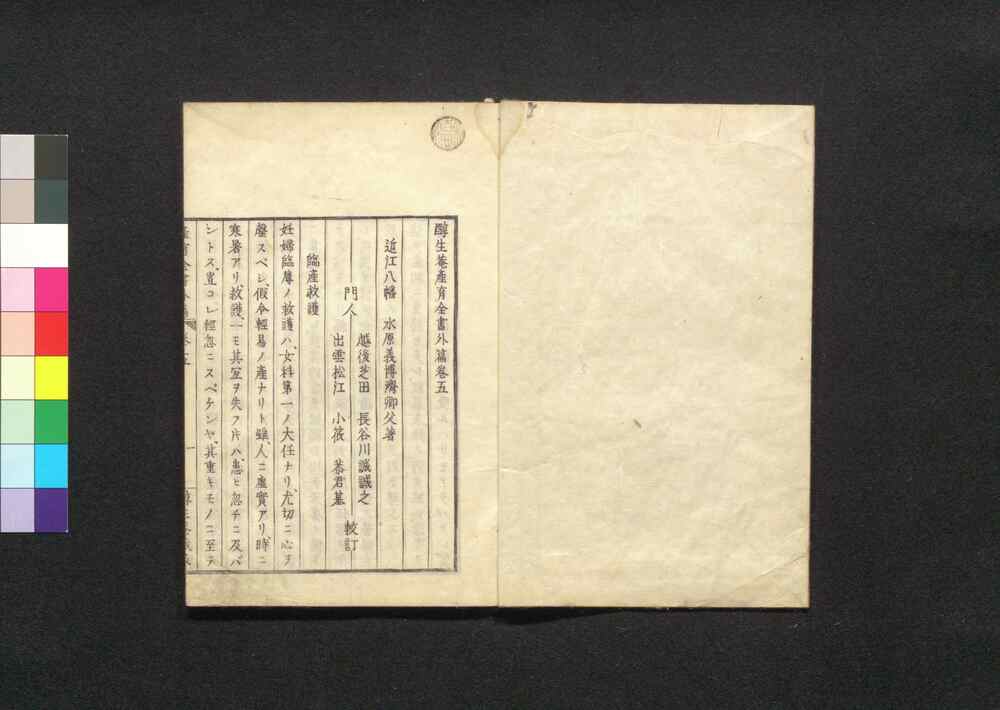 醇生菴產育全書外篇卷五
近江八幡 水原義博濟卿父著
門人
越後芝田 長谷川誠誠之
出雲松江 小筱 恭君基
較訂
臨產救護
妊婦臨蓐ノ救護ハ、女科第一ノ大任ナリ、尤切ニ心ヲ
罄スベシ、假令輕易ノ產ナリト雖、人ニ虛實アリ、時ニ
寒暑アリ、救護一モ其宜ヲ失フ片ハ、患ヒ忽チニ及バ
ントス、豈コレ輕忽ニスベケンヤ、其重キモノニ至テ